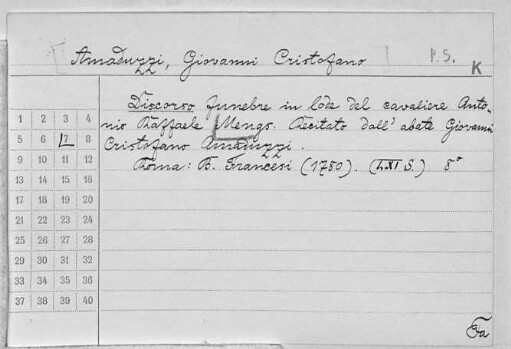 Amaduzzi, Giovanni Cristofano P. S. K
Discorso funebre in lode del cavaliere Anto-
nio Raffaele Mengs. Recitato dall' abate Giovanni
Cristofano Amaduzzi.
Roma: B. Francesi (1780). (LXI S.) 8°
1 2 3 4
5 6 7 8
9 10 11 12
13 14 15 16
17 18 19 20
21 22 23 24
25 26 27 28
29 30 31 32
33 34 35 36
37 38 39 40
Fa